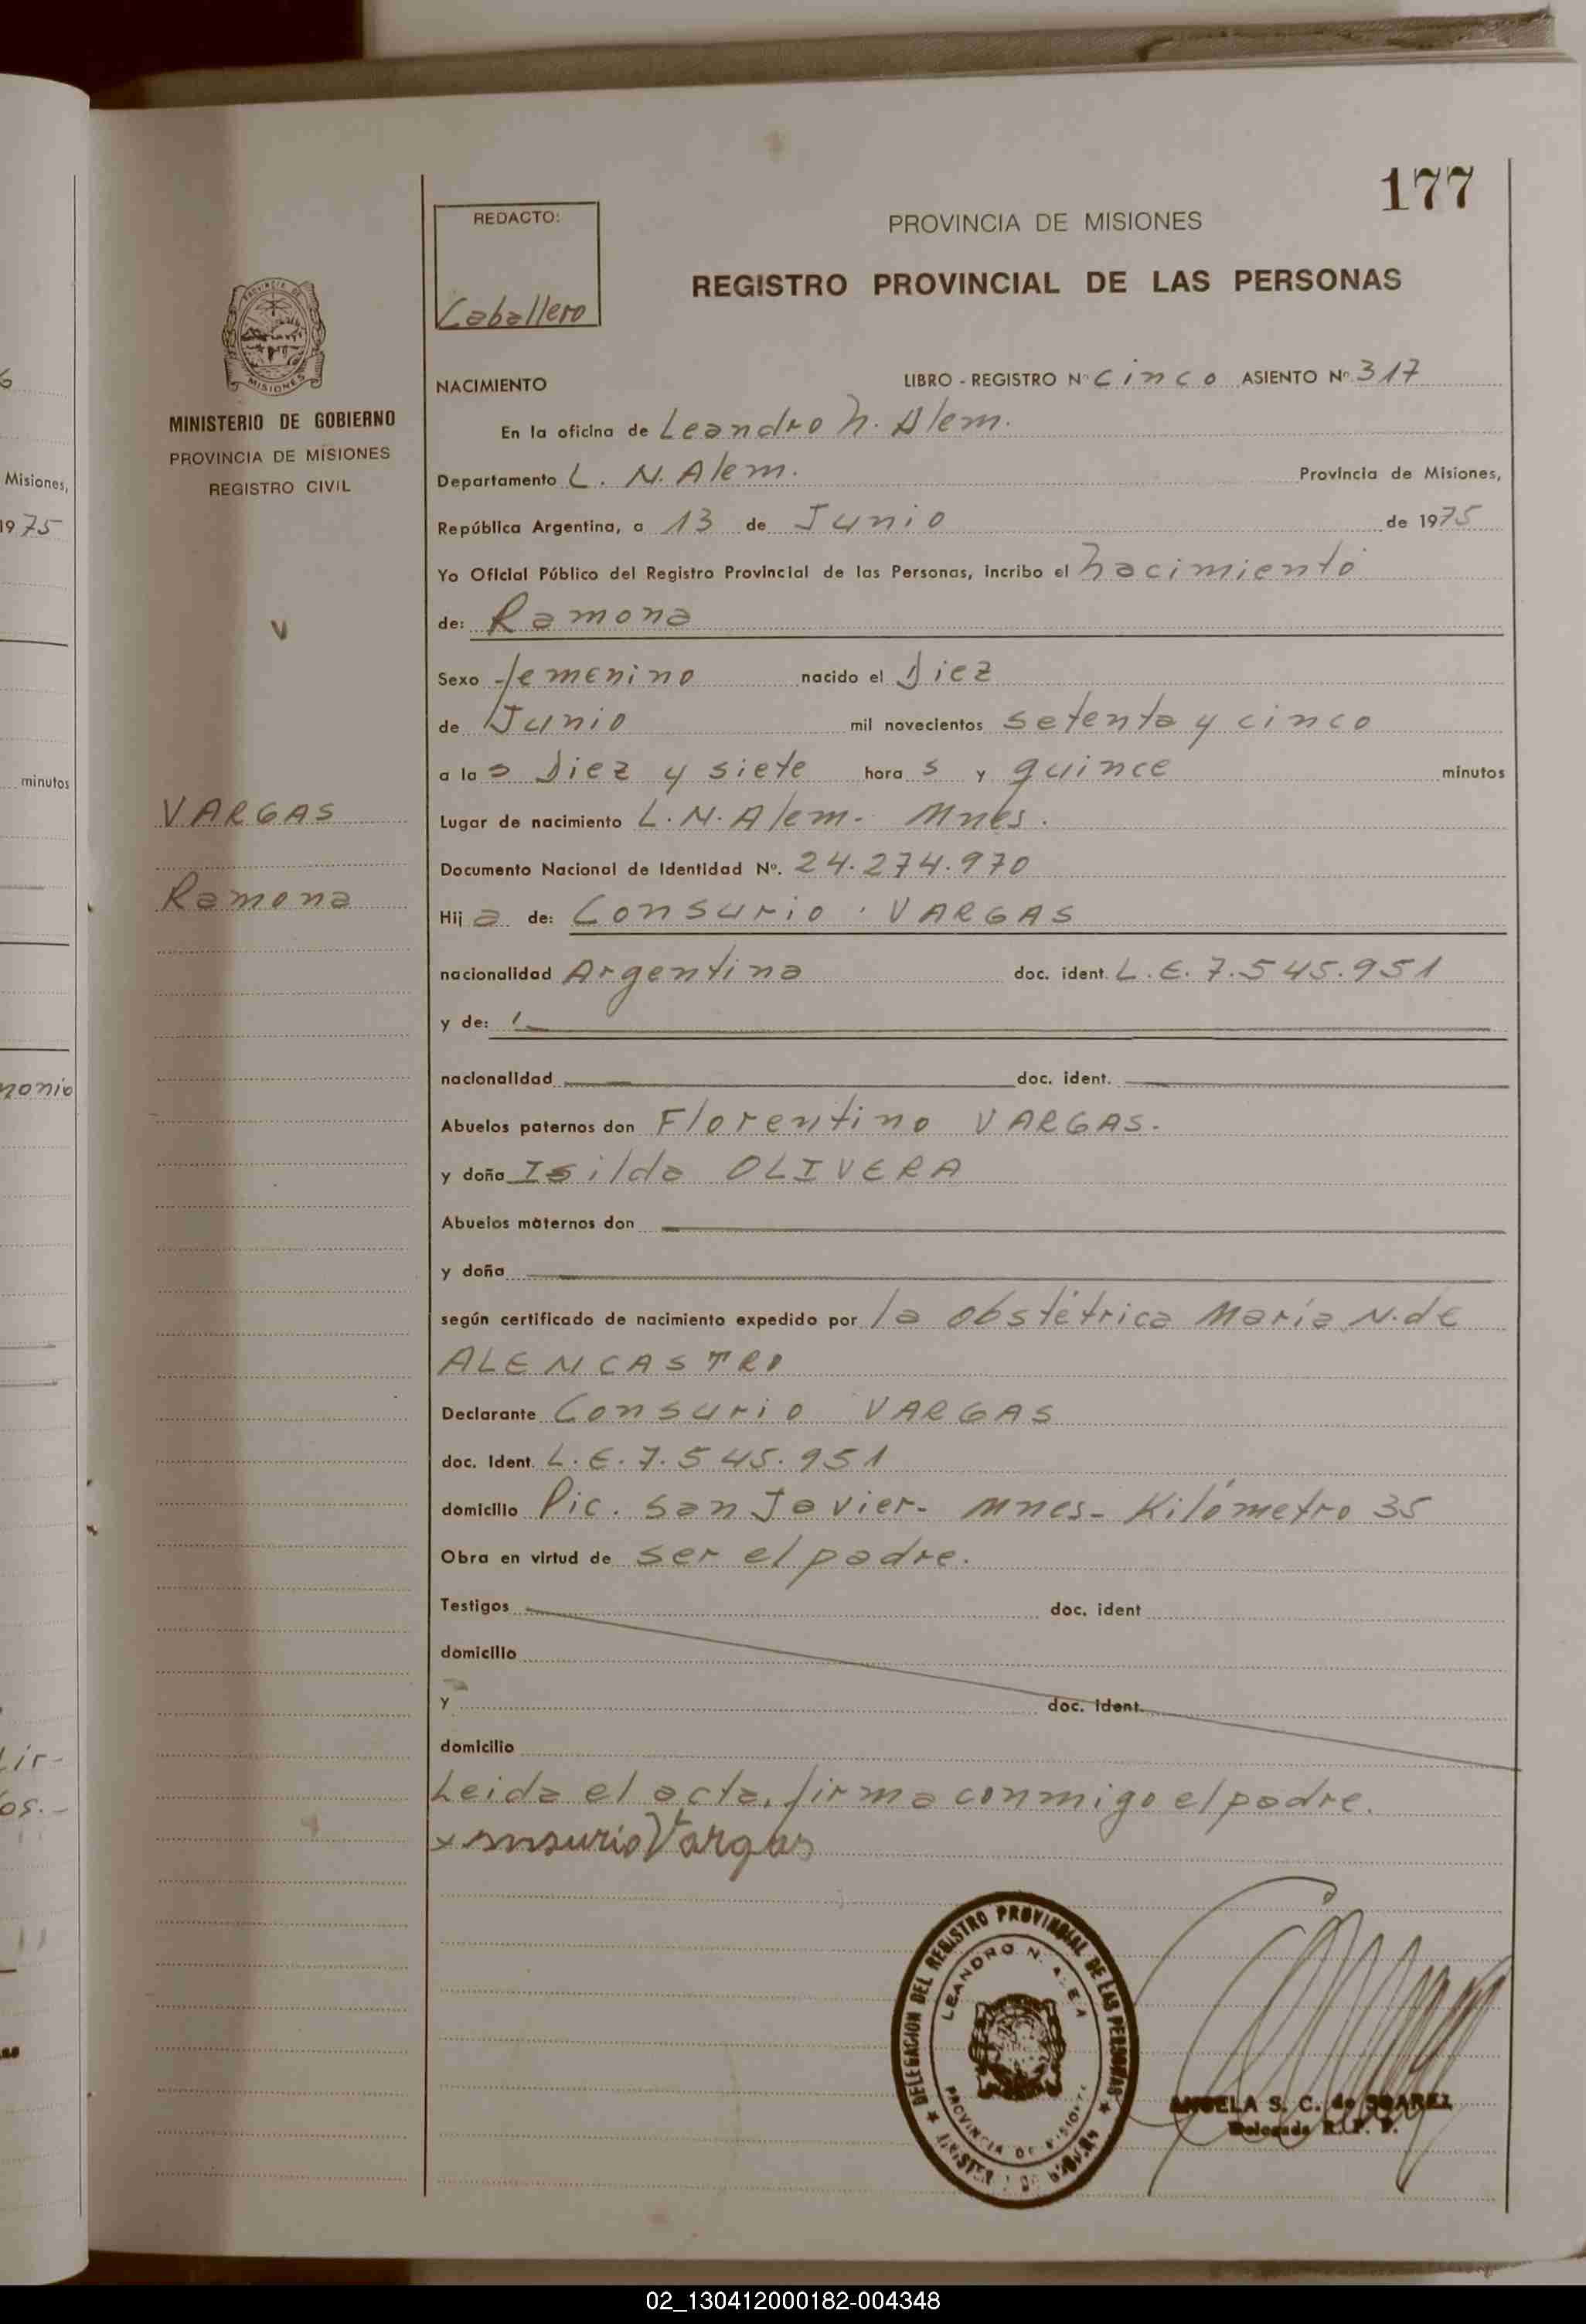 177
REDACTO:
Caballero
PROVINCIA DE MISIONES
REGISTRO PROVINCIAL DE LAS PERSONAS
MINISTERIO DE GOBIERNO
PROVINCIA DE MISIONES
REGISTRO CIVIL
VARGAS
Ramona
NACIMIENTO LIBRO - REGISTRO Nº cinco ASIENTO Nº 317
En la oficina de Leandro N. Alem.
Departamento L. N. Alem. Provincia de Misiones,
República Argentina, a 13 de Junio de 1975
Yo Oficial Público del Registro Provincial de las Personas, incribo el nacimiento
de: Ramona
Sexo femenino nacido el Diez
de Junio mil novecientos setenta y cinco
a las Diez y siete horas y quince minutos
Lugar de nacimiento L. N. Alem- Mnes.
Documento Nacional de Identidad Nº. 24.274.970
Hija de: Consurio VARGAS
nacionalidad Argentina doc. ident. L.E. 7.545.951
y de:
nacionalidad doc. ident.
Abuelos paternos don Florentino VARGAS.
y doña Isilda OLIVERA
Abuelos maternos don
y doña
según certificado de nacimiento expedido por la obstétrica María N. de
ALENCASTRO
Declarante Consurio VARGAS
doc. Ident. L.E. 7.545.951
domicilio Pic. San Javier- Mnes- Kilómetro 35
Obra en virtud de ser el padre.
Testigos doc. ident
domicilio
y doc. ident.
domicilio
Leida el acta, firma conmigo el padre.
Vargas
DELEGACION DEL REGISTRO PROVINCIAL DE LAS PERSONAS
LEANDRO N.
PROVINCIA DE MISIONES
ANGELA S. C. de SUAREZ
Delegada R. P. P.
Misiones,
1975
minutos
02_130412000182-004348